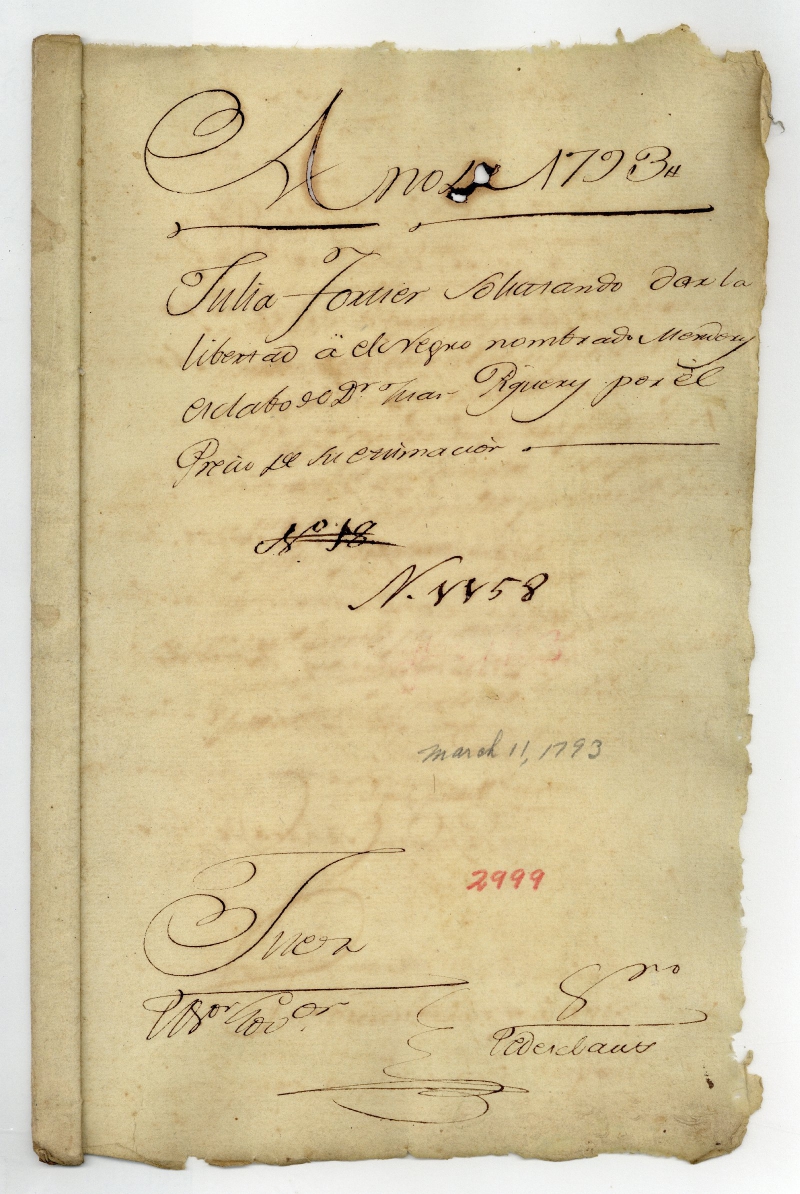 Año de 1793,,
Julia Fortier Solicitando dar la
libertad â el Negro nombrado Mendery
esclabo de Dn. Juan Piquery por el
Precio de su estimacion
No 18
N. 1158
March 11, 1793
2999
Juez
Sor. Gov.or
Ssno
Pedesclaux